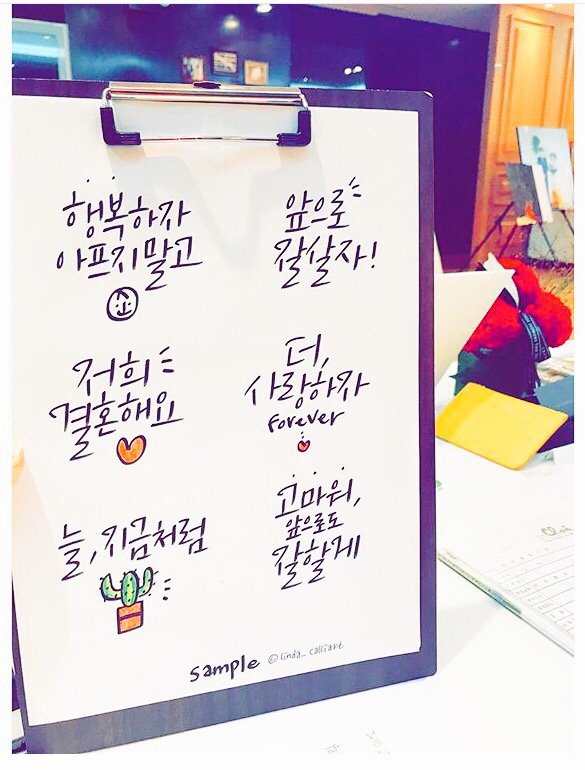 행복하자
아프지말고
앞으로
잘살자!
저희
결혼해요
더,
사랑하자
forever
늘, 지금처럼
고마워,
앞으로도
잘할게
sample ©linda_calliart